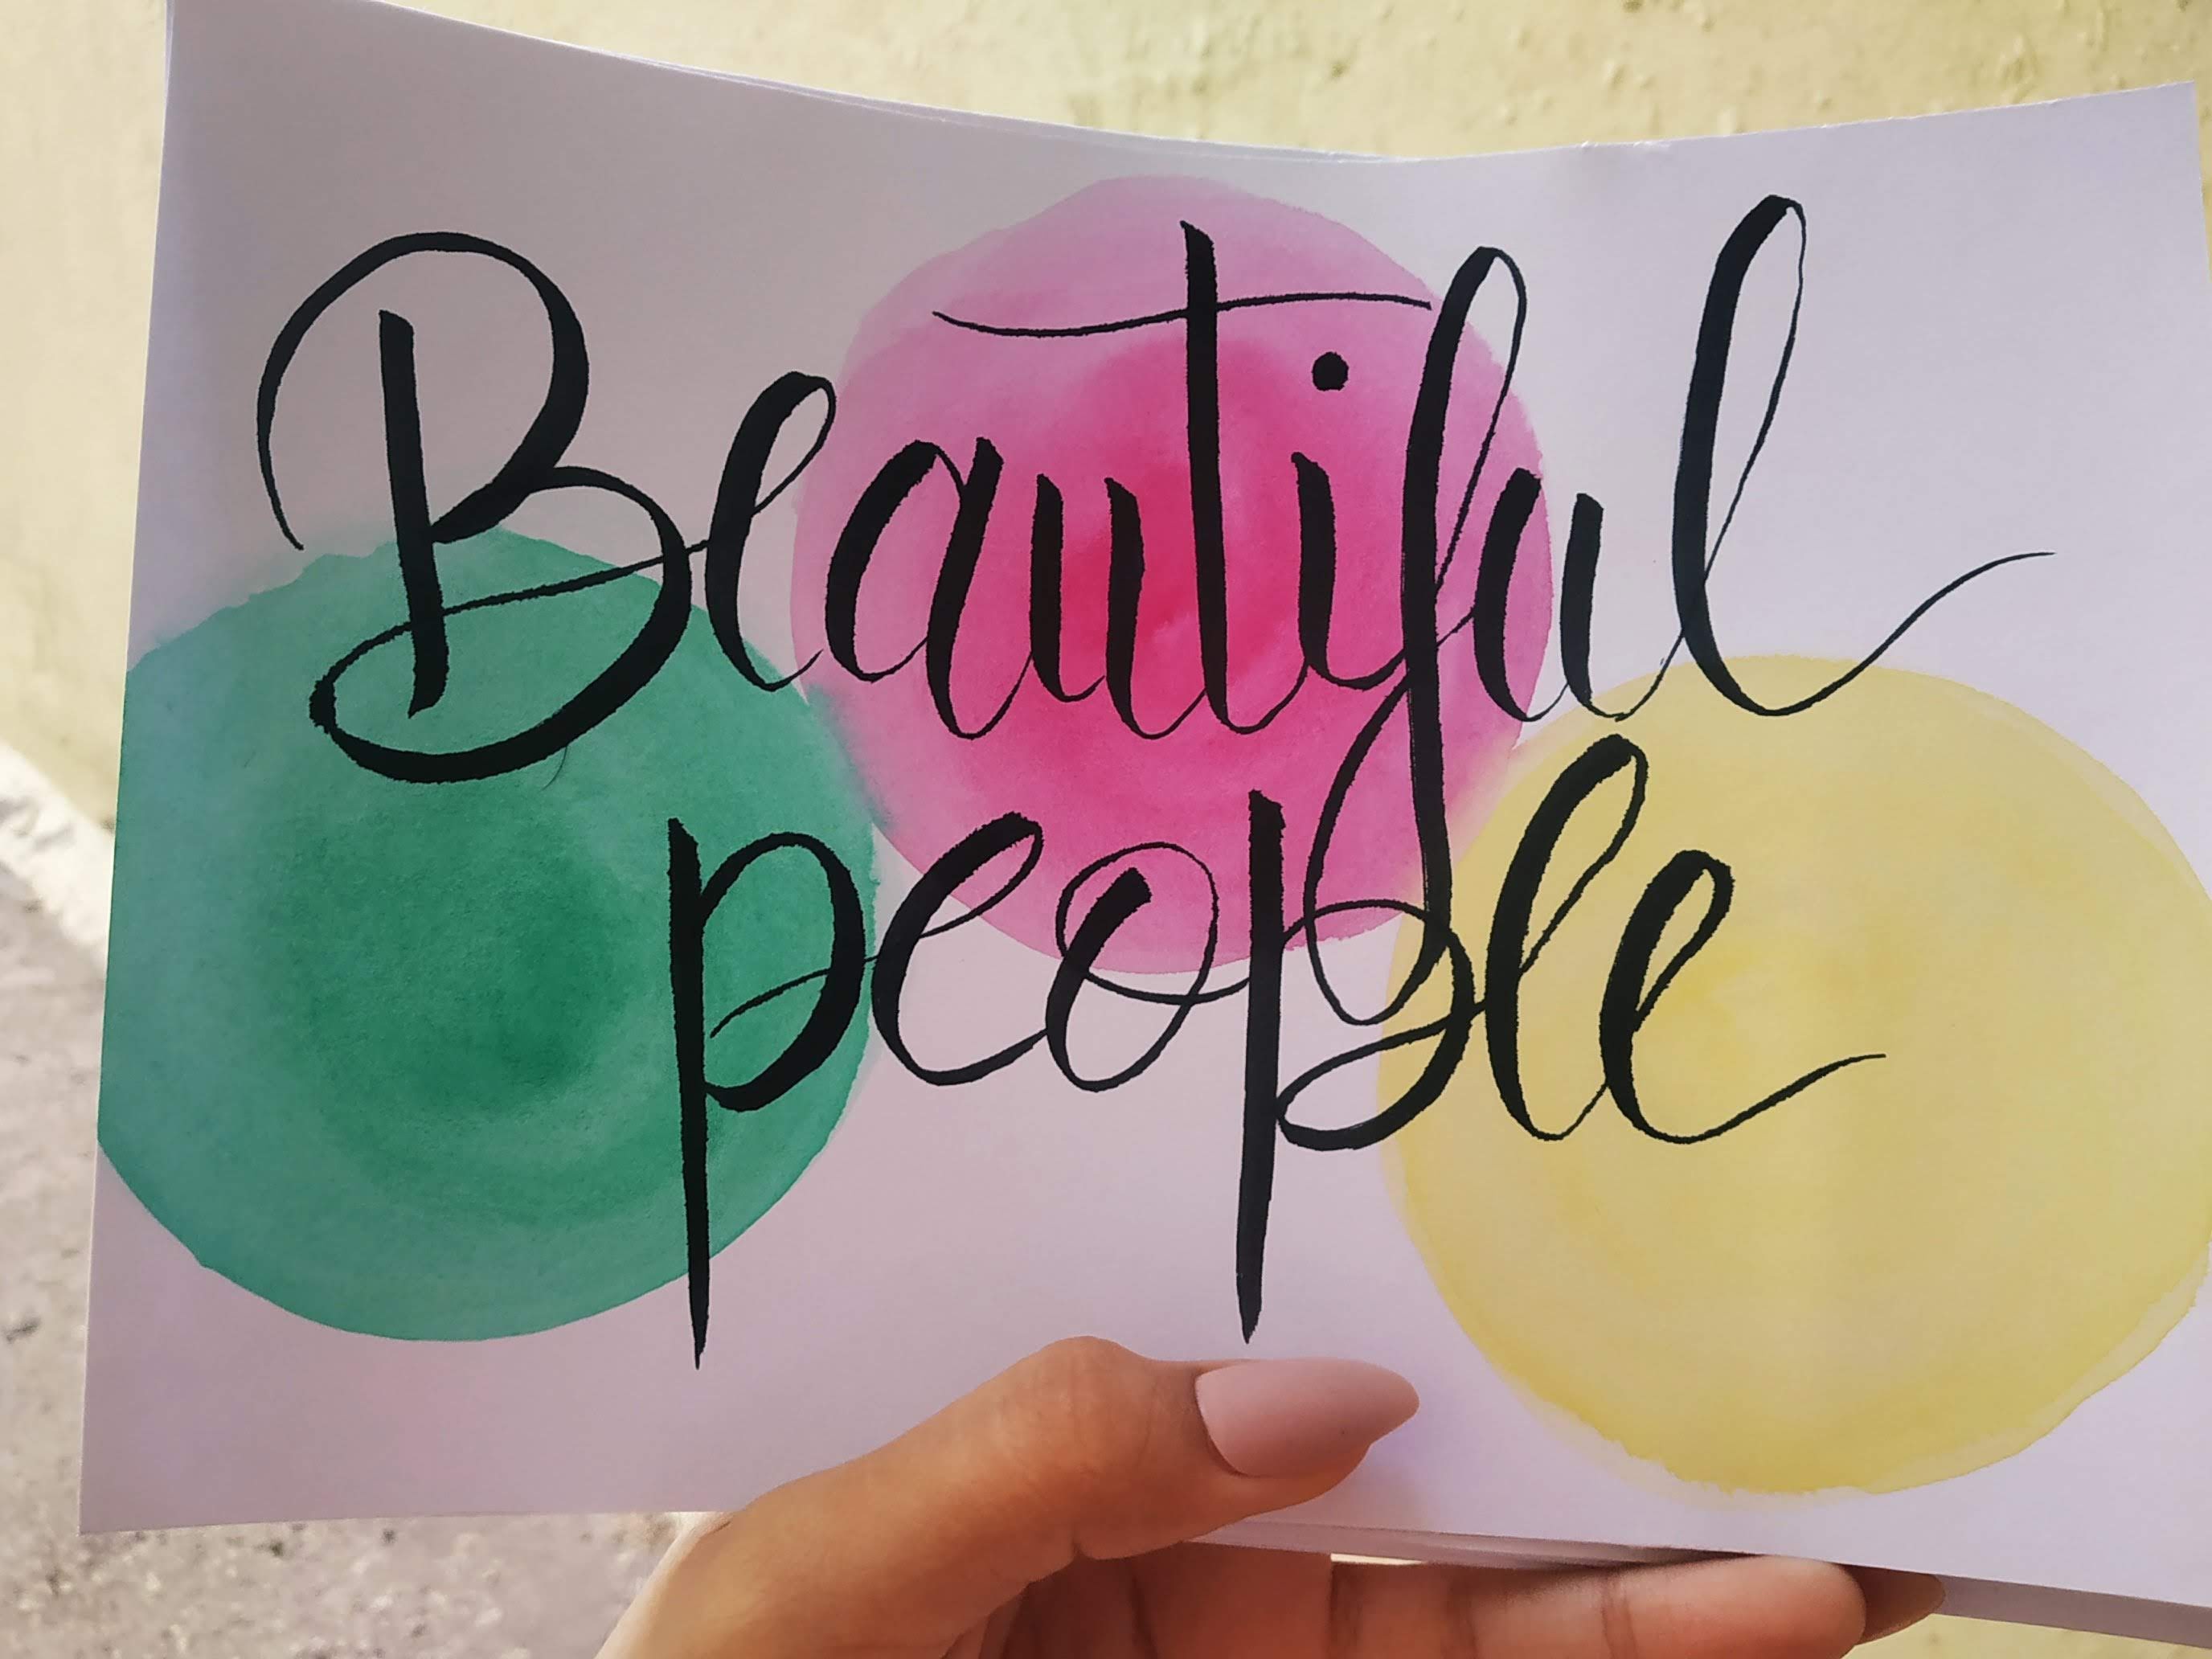 Beautiful
people